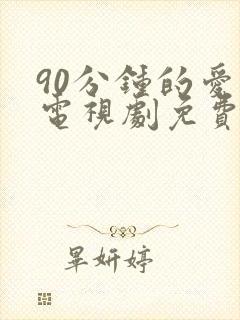 90分鍾的愛
電視劇免費
畢妍婷